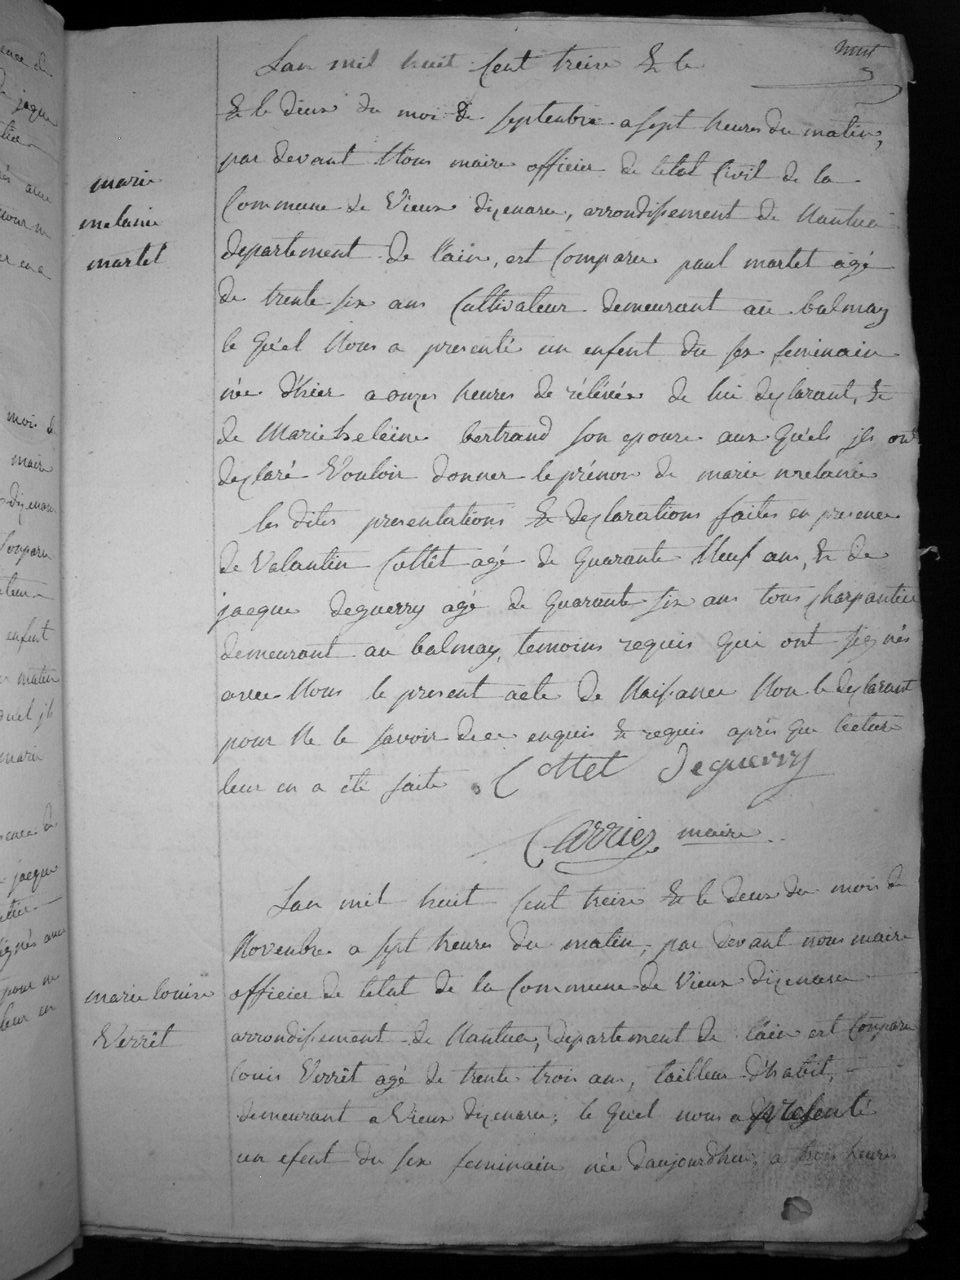 huit
Lan mil huit Cent treize & le
& le deux du moi de septenbre a sept heures du matin,
par devant Nous maire officier de letat Civil de la
marie
melanie
martet
Commune de Vieux dizenave, arrondissement de Nantua
departement de l'ain, est Comparu paul martet agé
de trente six ans Cultivateur demeurant au balmay
le quel Nous a presenté un enfent du sex feminain
née d'hier a onzes heures de rélévée de lui declarant, &
de Marie heleine bertrand son epouse aux quels ils ont
declaré Vouloir donner le prénon de marie melanie
les dites presentations & declarations faites en presence
de Valantin Cottet agé de quarante Neuf ans, & de
jacque deguerry agé de quarante six ans tous charpantier
demeurant au balmay, temoins requis qui ont signés
avec Nous le present acte de Naissance Non le declarant
pour Ne le savoir de ce enquis & requis aprés que lecture
leur en a été faite Cottet Deguerry
Carrier maire
Lan mil huit Cent treize & le deux du mois de
Novenbre a sept heures du matin, par devant nous maire
marie louise
Verrêt
officier de letat de la Commune de Vieux dizenave
arrondissement de Nantua, departement de l'ain est Comparu
louis Verrêt agé de trente trois ans, tailleur d'habit,
demeurant a Vieux dizenave, le quel nous a presenté
un efent du sex feminain née d'aujourdhui, a trois heures